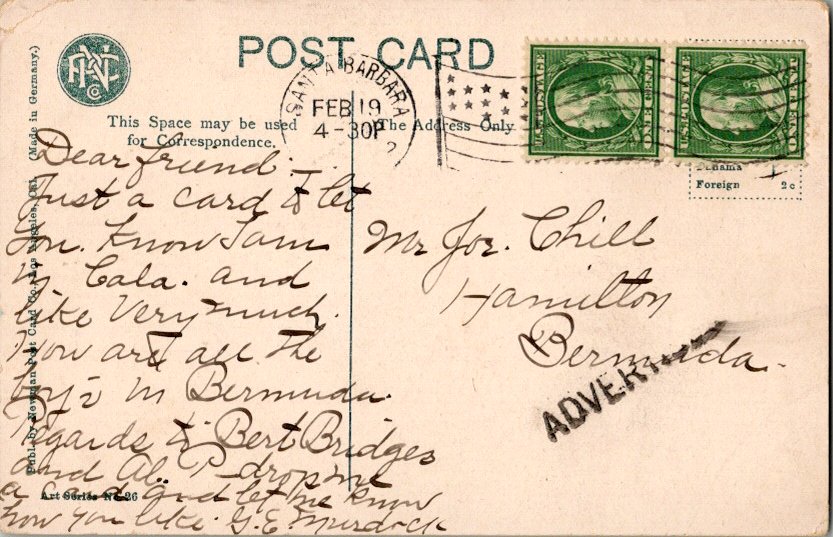 POST CARD
PNC Co
SANTA BARBARA
FEB 19
4-30P
This Space may be used
for Correspondence.
The Address Only
U.S. POSTAGE
ONE CENT
U.S. POSTAGE
ONE CENT
Panama
Foreign 2c
Publ. by Newman Post Card Co., Los Angeles, Cal. (Made in Germany.)
Dear friend.
Just a card to let
you. Know I am
in Cala. and
like Very much.
How are all the
boy's in Bermuda.
Regards to Bert Bridges
and Al. P- drop me
a card and let me know
how you like. G.E. Murdock
Art Series No 26
Mr Joe. Chill
Hamilton
Bermuda.
ADVERT